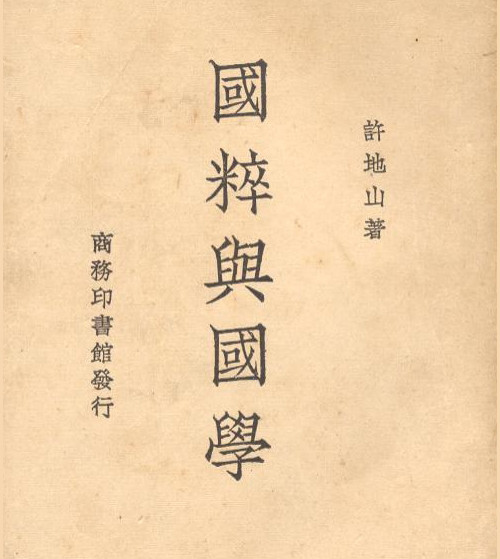 許地山著
國粹與國學
商務印書館發行